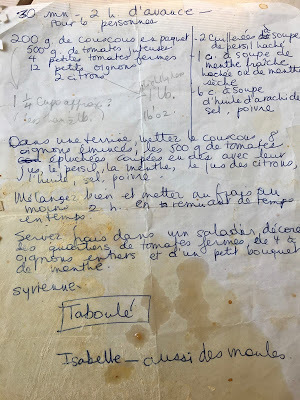 30 mn. - 2 h d'avance -
pour 6 personnes
200 g. de couscous en paquet
500 g de tomates juteuses
4 petites tomates fermes
12 petits oignons
2 citrons
- 2 cuillerées à soupe
de persil haché
1 c. à soupe de
menthe fraîche
hachée ou de menthe
sèche
6 c. à soupe
d'huile d'arachide
sel, poivre
1 lb.
16 oz.
1 Cup approx.
Dans une terrine, mettez le couscous, 8
oignons émincés, les 500 g de tomates
épluchées coupées en dés avec leur
jus, le persil, la menthe, le jus des citrons,
l'huile, sel, poivre.
Mélangez bien et mettez au frais au
moins 2 h. en remuant de temps
en temps.
Servez frais dans un saladier, décoré
de quartiers de tomates fermes, de 4
oignons entiers et d'un petit bouquet
de menthe.
Taboulé
Isabelle - aussi des moules.